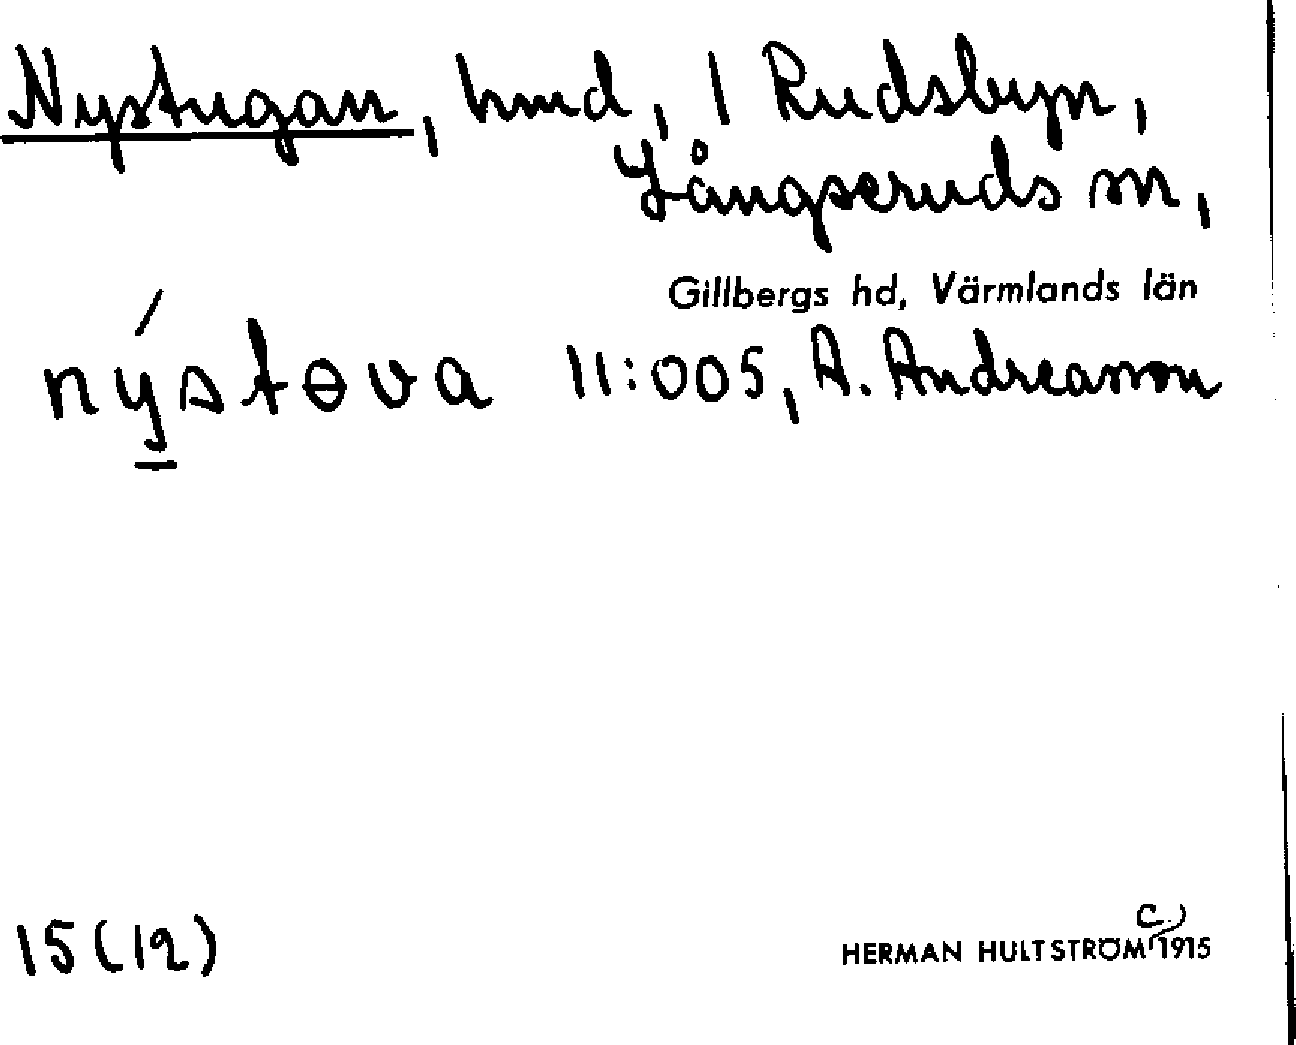 Nystugan, hmd, 1 Rudsbyn,
Långseruds sn,
Gillbergs hd, Värmlands län
nýstɵva 11:005, A. Andreasson
15(12)
HERMAN HULTSTRÖM c) 1915